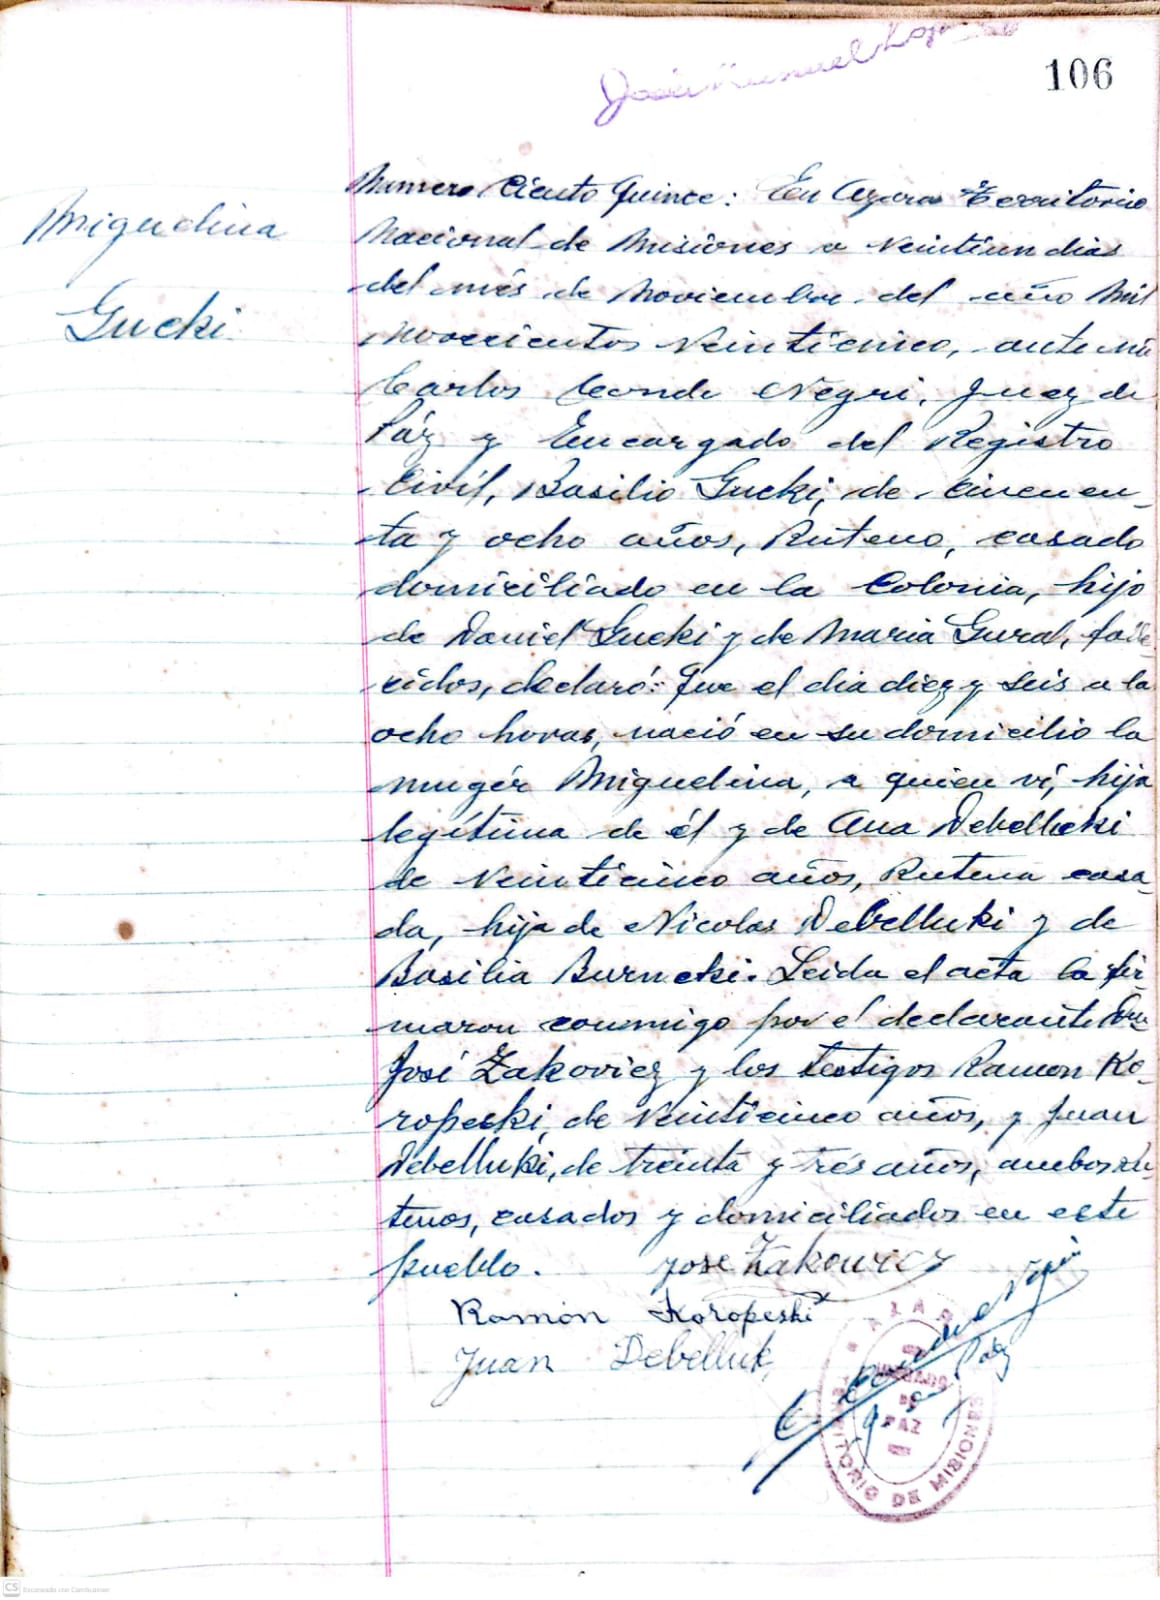 José Manuel
106
Miguelina
Gucki
Numero Ciento Quince: En Azara Territorio
Nacional de Misiones a veintiun dias
del més de Noviembre del año Mil
novecientos veinticinco, ante mi
Carlos Conde Negri, Juez de
Páz y Encargado del Registro
Civíl, Basilio Gucki, de cincuen-
ta y ocho años, Ruteno, casado
domiciliado en la Colonia, hijo
de Daniel Gucki y de Maria Gural, falle
cidos, declaró: Que el dia diez y seis a la
ocho horas, nació en su domicilio la
mugér Miguelina, a quien ví, hija
legítima de él y de Ana Debellucki
de veinticinco años, Rutena casa-
da, hija de Nicolas Debelluki y de
Basilia Burneki. Leida el acta la fir
maron conmigo por el declarante Don
José Zakoviez y los testigos Ramon Ko-
ropeski, de veinticinco años, y Juan
Debelluki, de treinta y trés años, ambos ru-
tenos, casados y domiciliados en este
pueblo. José Zakowicz
Ramón Koropeski
Juan Debelluk
C. Conde Negri
Juez de Paz
AZARA
JUZGADO
DE
PAZ
TERRITORIO DE MISIONES
CS Escaneado con CamScanner